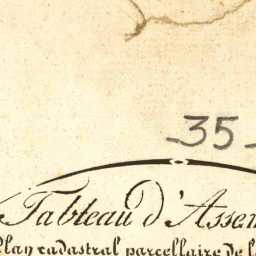 -35-
Tableau d'Assem
Plan cadastral parcellaire de l